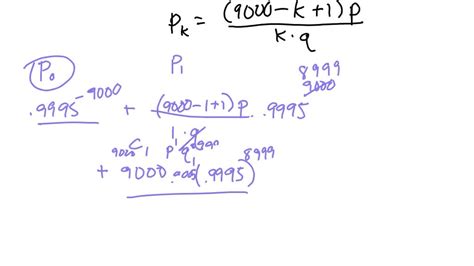 P_k = (9000-k+1)p / k·q
P_0 P_1 8999
.9995^-9000 + (9000-1+1)p / 1·q · .9995^9000
9000C1 p^1 q^8999
+ 9000 .0005^1 (.9995)^8999